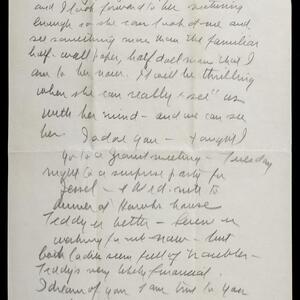 and I look forward to her
enough so she can look at me and
see something more than the familiar
half-wall paper, half doll man that I
am to her now. It will be thrilling
when she can really "see" us
with her mind - and we can see
her. I adore you - tonight I
go to a meeting - Tuesday
night to a surprise party for
Jessel -
dinner at house
Teddy is better - is
working for me now - but
both seem full of troubles -
Teddy's very likely financial.
I dream of you I am true to you